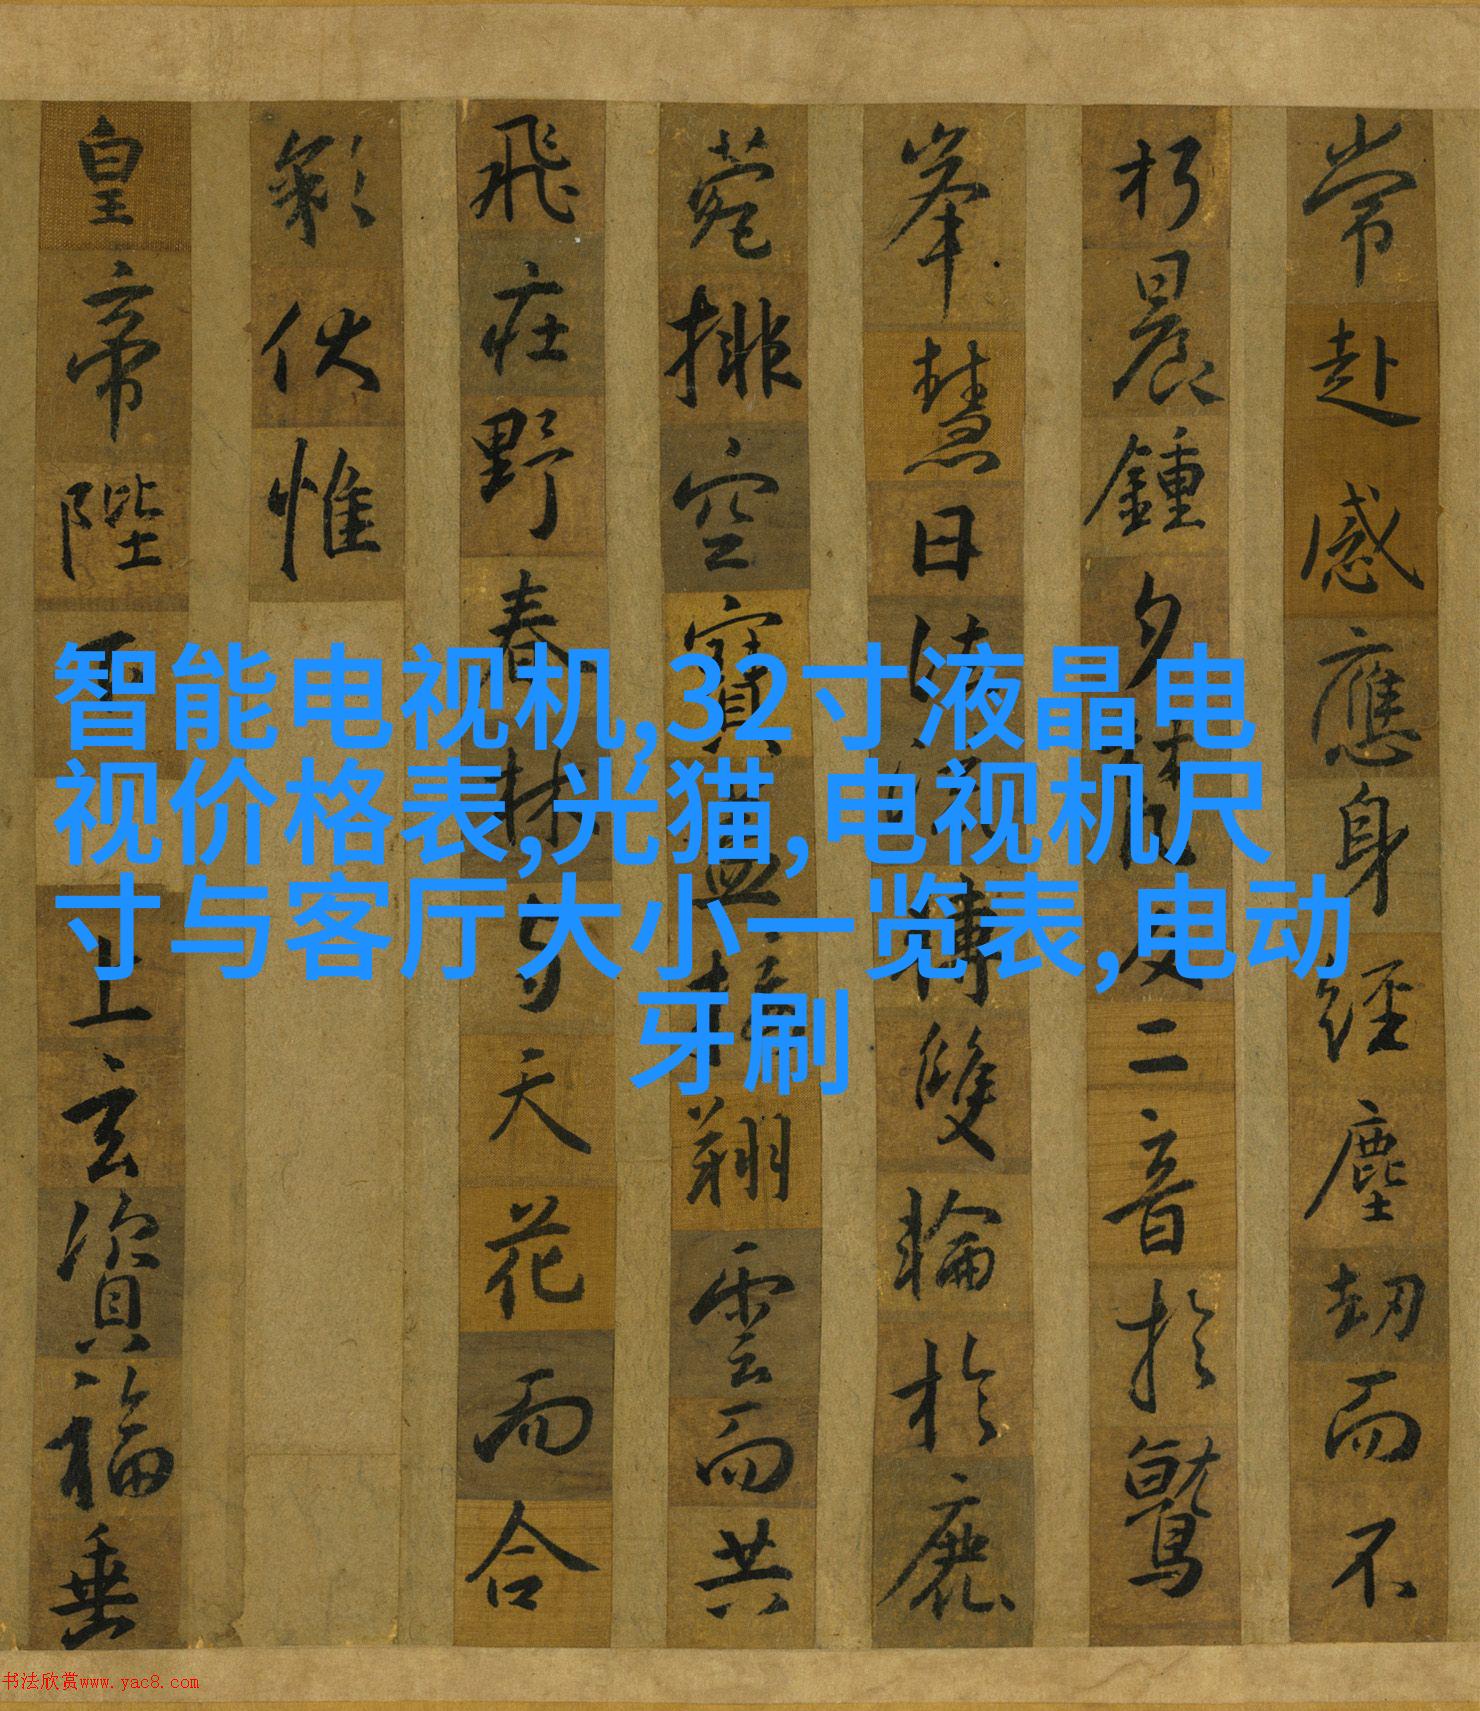 常赴感應身經塵劫而不
朽晨鍾夕梵交二音於鷲
峯慧日法流轉雙輪於鹿
菀排空寶蓋接翔雲而共
飛莊野春林与天花而合
彩伏惟
皇帝陛下上玄資福垂
智能电视机,32寸液晶电
视价格表,光猫,电视机尺
寸与客厅大小一览表,电动
牙刷
书法欣赏www.yac8.com